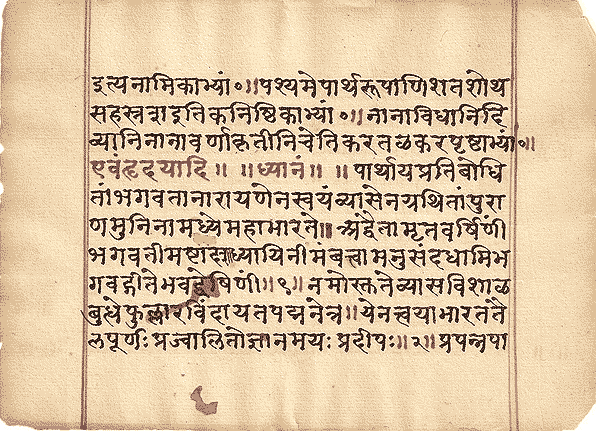 इत्यनामिकाभ्यां०॥पश्यमेपार्थरूपाणिशतशोथ
सहस्रशइतिकनिष्ठिकाभ्यां०॥नानाविधानिदि
व्यानिनानावर्णाकृतीनिचेतिकरतळकरपृष्ठाभ्यां०॥
एवंहृदयादि॥ ॥ध्यानं॥ ॥पार्थायप्रतिबोधि
तांभगवतानारायणेनस्वयंव्यासेनग्रथितांपुरा
णमुनिनामध्येमहाभारते॥अद्वैतामृतवर्षिणीं
भगवतीमष्टादशाध्यायिनीमंबत्वामनुसंदधामिभ
गवद्गीतेभवद्वेषिणीं॥१॥नमोस्तुतेव्यासविशाळ
बुद्धेफुल्लारविंदायतपद्मनेत्र॥येनत्वयाभारततै
लपूर्णःप्रज्वालितोज्ञानमयःप्रदीपः॥२॥प्रपन्नपा